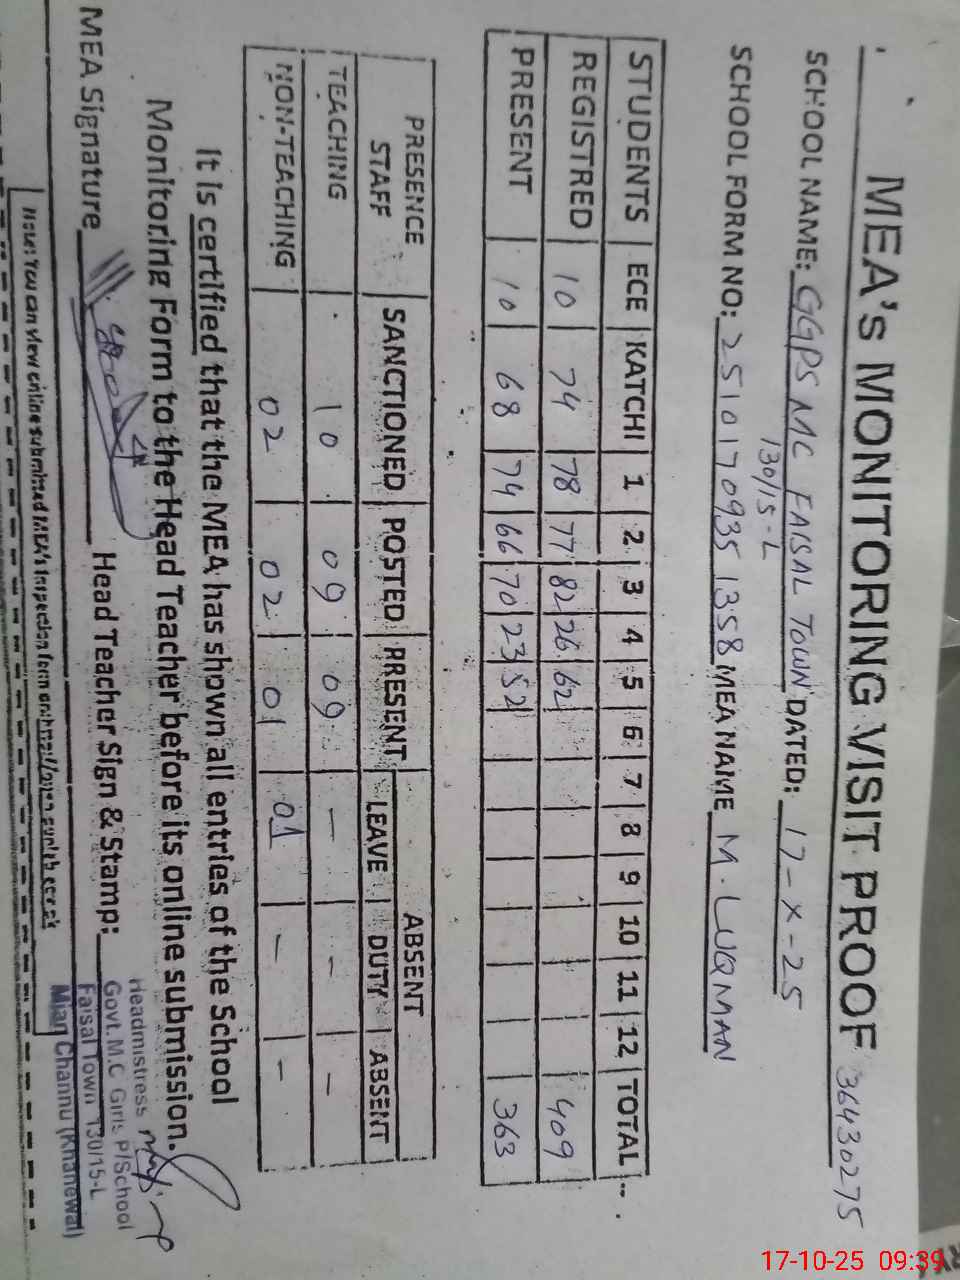 MEA's MONITORING VISIT PROOF 36430275
SCHOOL NAME: GGPS MC FAISAL TOWN DATED: 17-X-25
130/15-L
SCHOOL FORM NO: 2510170935 1358 MEA NAME M. LUQMAN
STUDENTS ECE KATCHI 1 2 3 4 5 6 7 8 9 10 11 12 TOTAL
REGISTRED 10 74 78 77 82 26 62 409
PRESENT 10 68 74 66 70 23 52 363
PRESENCE STAFF SANCTIONED POSTED PRESENT ABSENT
LEAVE DUTY ABSENT
TEACHING 10 09 09 - - -
NON-TEACHING 02 02 01 01 - -
It is certified that the MEA has shown all entries of the School
Monitoring Form to the Head Teacher before its online submission.
MEA Signature Head Teacher Sign & Stamp:
Headmistress
Govt. M.C Girls P/School
Faisal Town 130/15-L
Mian Channu (Khanewal)
Note: You can view online submitted MEA's inspection form on
17-10-25 09:39